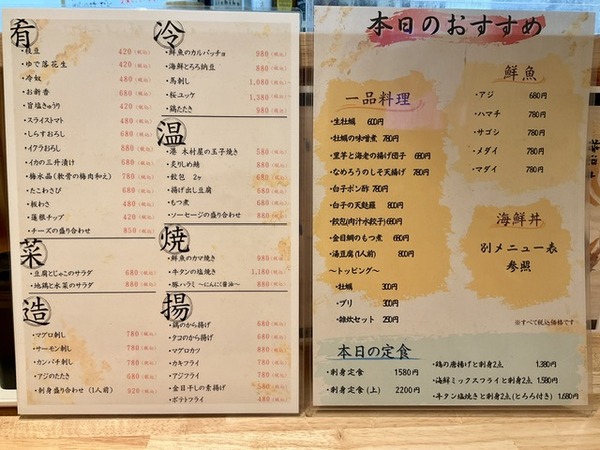 肴
・枝豆 420(税込)
・ゆで落花生 420(税込)
・冷奴 420(税込)
・お新香 680(税込)
・旨塩きゅうり 420(税込)
・スライストマト 480(税込)
・しらすおろし 680(税込)
・イクラおろし 880(税込)
・イカの三升漬け 680(税込)
・梅水晶(軟骨の梅肉和え) 780(税込)
・たこわさび 680(税込)
・板わさ 480(税込)
・蓮根チップ 420(税込)
・チーズの盛り合わせ 850(税込)
菜
・豆腐とじゃこのサラダ 680(税込)
・地鶏と水菜のサラダ 880(税込)
造
・マグロ刺し 780(税込)
・サーモン刺し 780(税込)
・カンパチ刺し 780(税込)
・アジのたたき 680(税込)
・刺身盛り合わせ(1人前) 920(税込)
冷
・鮮魚のカルパッチョ 980(税込)
・海鮮とろろ納豆 880(税込)
・馬刺し 1,080(税込)
・桜ユッケ 1,380(税込)
・鶏たたき 980(税込)
温
・港 木村屋の玉子焼き 580(税込)
・炙りしめ鯖 880(税込)
・餃包 2ヶ
・揚げ出し豆腐 680(税込)
・もつ煮 680(税込)
・ソーセージの盛り合わせ 880(税込)
焼
・鮮魚のカマ焼き 980(税込)
・牛タンの塩焼き 1,180(税込)
・豚ハラミ 〜にんにく醤油〜 880(税込)
揚
・鶏のから揚げ 680(税込)
・タコのから揚げ 680(税込)
・マグロカツ 680(税込)
・カキフライ 780(税込)
・アジフライ 780(税込)
・金目干しの素揚げ 680(税込)
・ポテトフライ 480(税込)
本日のおすすめ
一品料理
・生牡蠣 600円
・牡蠣の味噌煮 780円
・里芋と海老の揚げ団子 680円
・なめろうのしそ天揚げ 780円
・白子ポン酢 780円
・白子の天麩羅 800円
・餃包(肉汁水餃子) 680円
・金目鯛のもつ煮 680円
・湯豆腐(1人前) 800円
〜トッピング〜
・牡蠣 300円
・ブリ 300円
・雑炊セット 250円
鮮魚
・アジ 680円
・ハマチ 780円
・サゴシ 780円
・メダイ 780円
・マダイ 780円
海鮮丼
別メニュー表
参照
※すべて税込価格です
本日の定食
・刺身定食 1580円
・刺身定食(上) 2200円
・鶏の唐揚げと刺身2点 1.380円
・海鮮ミックスフライと刺身2点 1.580円
・牛タン塩焼きと刺身2点(とろろ付き) 1.680円